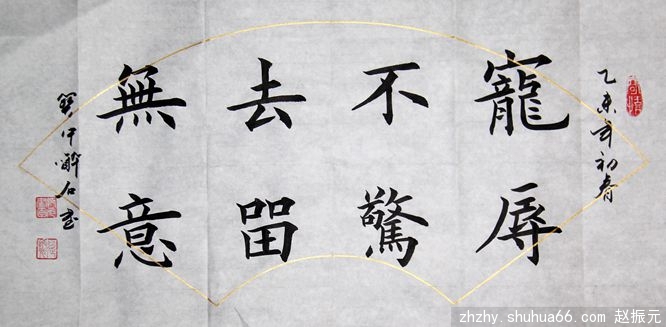 乙未年初春
寵辱
不驚
去留
無意
醉石
zhzhy.shuhua66.com 赵振元